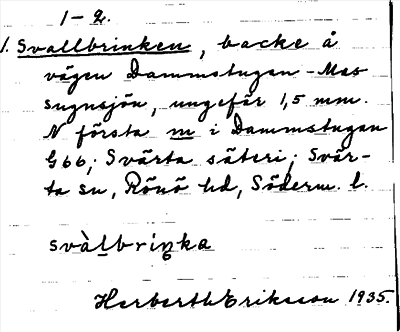 1-2.
1. Svallbrinken, backe å
vägen Dammstugan-Mas
sugnsjön, ungefär 1,5 mm.
N första m i Dammstugan
G66; Svärta säteri; Svär-
ta sn, Rönö hd, Söderm. l.
svàlbriŋka
Herberth Eriksson 1935.